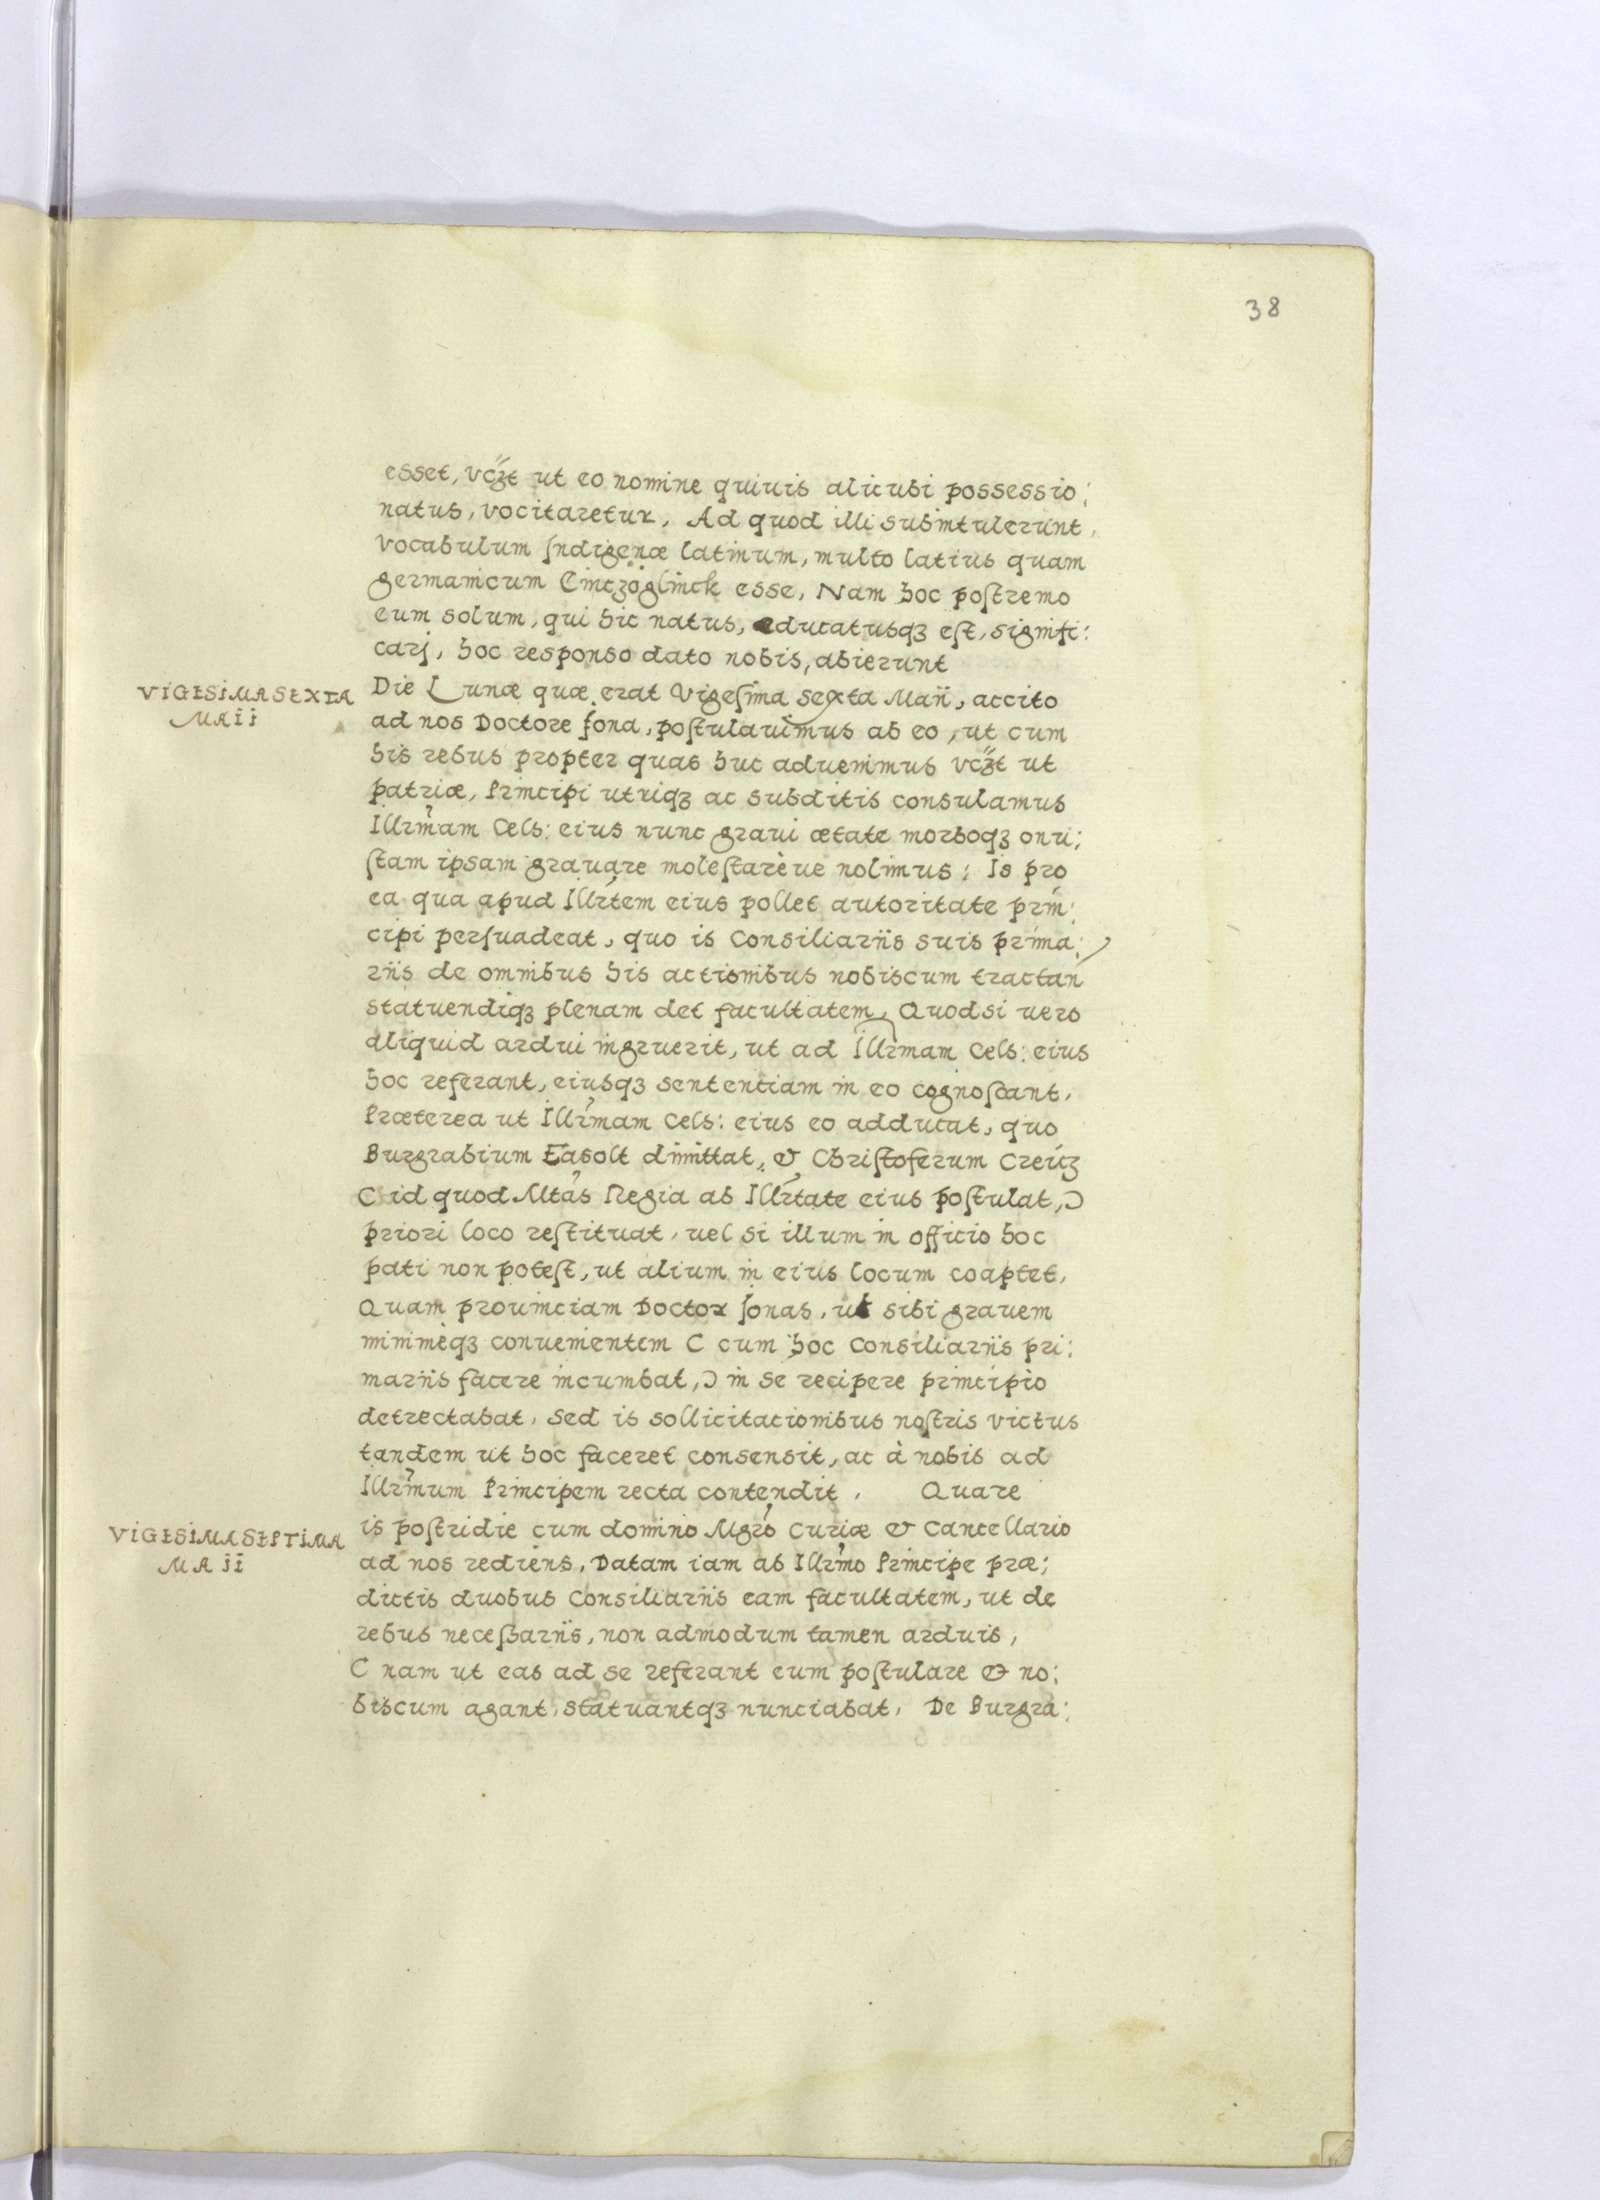 38
esset, vcʒt ut eo nomine quiuis alicubi possessio:
natus, vocitaretur, Ad quod illi subintulerunt,
vocabulum Indigenæ latinum, multo latius quam
germanicum Eintzöglinck esse, Nam hoc postremo
eum solum, qui hic natus, educatusqʒ est, signifi:
carj, hoc responso dato nobis, abierunt
VIGESIMA SEXTA
MAII
Die Lunæ quæ erat Vigesima sexta Maii, accito
ad nos Doctore Jona, postulauimus ab eo, ut cum
his rebus propter quas huc aduenimus vcʒt ut
patriæ, Principi utriqʒ ac subditis consulamus
Illrmam Cels: eius nunc graui ætate morboqʒ onu:
stam ipsam grauare molestarèue nolimus: Is pro
ea qua apud Illrtem eius pollet autoritate prin:
cipi persuadeat, quo is Consiliariis suis prima:
riis de omnibus his actionibus nobiscum tractan
statuendiqʒ plenam det facultatem, Quodsi uero
aliquid ardui ingruerit, ut ad Illrmam Cels: eius
hoc referant, eiusqʒ sententiam in eo cognoscant,
Præterea ut Illrmam Cels: eius eo adducat, quo
Burgrabium Easolt dimittat, & Christoferum Creitʒ
C id quod Mtas Regia ab Illrtate eius postulat, Ɔ
priori loco restituat, uel si illum in officio hoc
pati non potest, ut alium in eius locum coaptet,
Quam prouinciam Doctor Jonas, ut sibi grauem
minimèqʒ conuenientem C cum hoc Consiliariis pri:
mariis facere incumbat, Ɔ in se recipere principio
detrectabat, sed is sollicitationibus nostris victus
tandem ut hoc faceret consensit, ac à nobis ad
Illrmum Principem recta contendit, Quare
VIGESIMA SEPTIMA
MAII
is postridie cum domino Mgro Curiæ & Cancellario
ad nos rediens, Datam iam ab Illrmo Principe præ:
dictis duobus Consiliariis eam facultatem, ut de
rebus neceßariis, non admodum tamen arduis,
C nam ut eas ad se referant eum postulare & no:
biscum agant, statuantqʒ nunciabat, De Burgra: